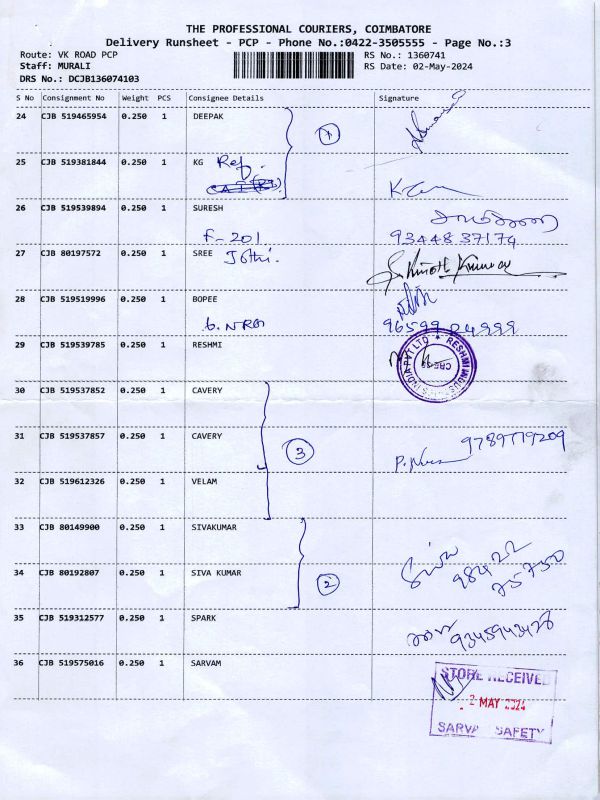 THE PROFESSIONAL COURIERS, COIMBATORE
Delivery Runsheet - PCP - Phone No.:0422-3505555 - Page No.:3
Route: VK ROAD PCP
RS No.: 1360741
Staff: MURALI
RS Date: 02-May-2024
DRS No.: DCJB136074103
S No Consignment No Weight PCS Consignee Details Signature
24 CJB 519465954 0.250 1 DEEPAK
25 CJB 519381844 0.250 1 KG
26 CJB 519539894 0.250 1 SURESH
F-201 93448 37174
27 CJB 80197572 0.250 1 SREE Jothi.
28 CJB 519519996 0.250 1 BOPEE
96599 24999
29 CJB 519539785 0.250 1 RESHMI
30 CJB 519537852 0.250 1 CAVERY
31 CJB 519537857 0.250 1 CAVERY 9789779209
3
32 CJB 519612326 0.250 1 VELAM
33 CJB 80149900 0.250 1 SIVAKUMAR
Siva 98422
75750
34 CJB 80192807 0.250 1 SIVA KUMAR
2
35 CJB 519312577 0.250 1 SPARK 9345943428
36 CJB 519575016 0.250 1 SARVAM
STORE RECEIVED
2 MAY 2024
SARVA SAFETY